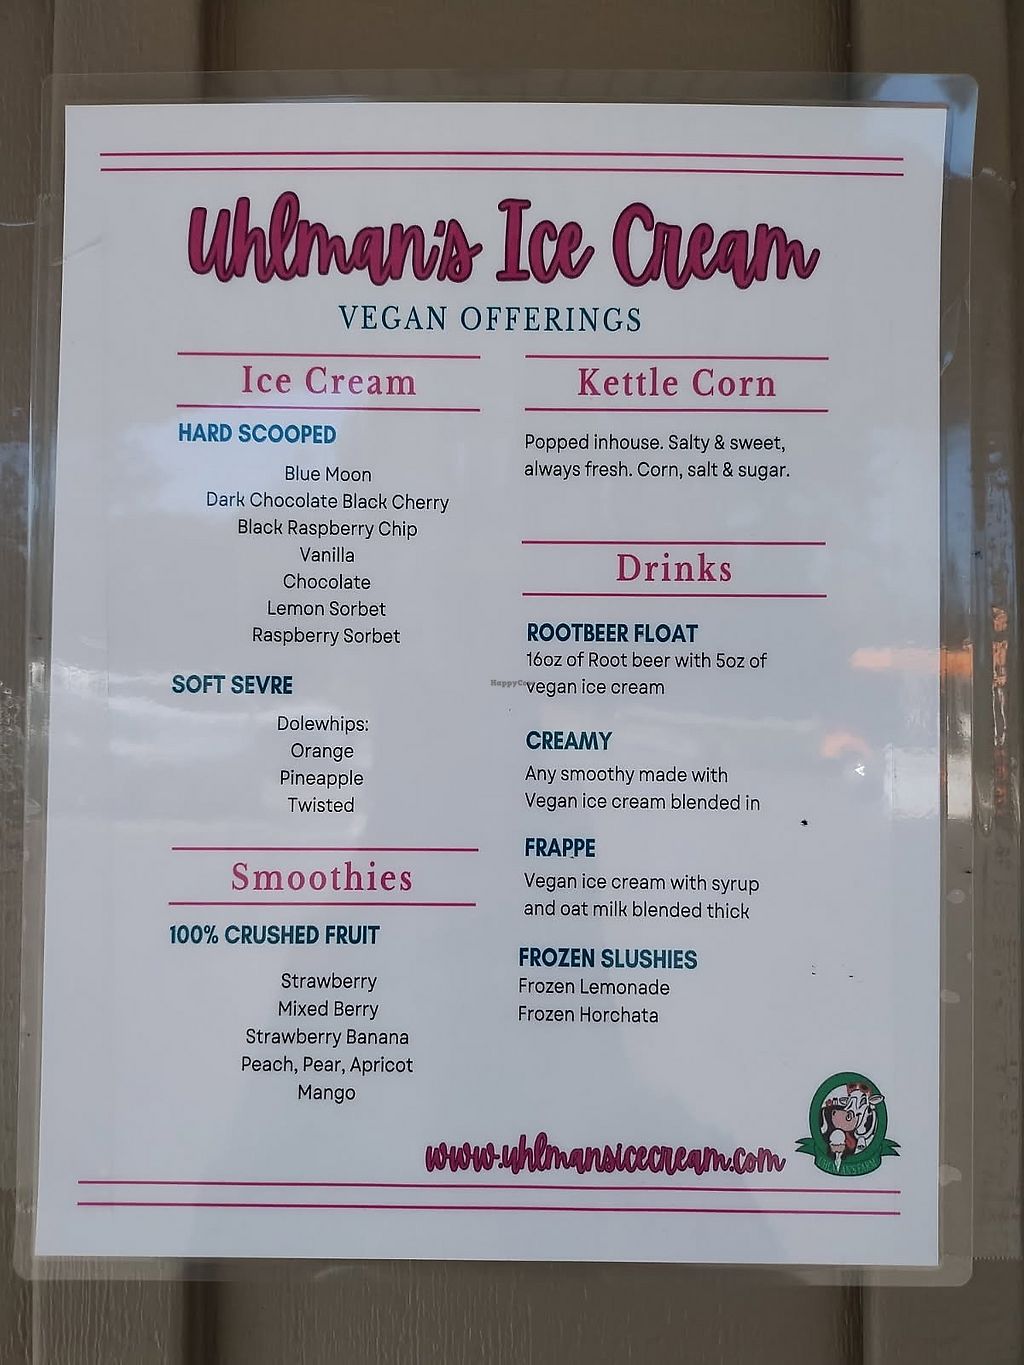 Uhlman's Ice Cream
VEGAN OFFERINGS
Ice Cream
HARD SCOOPED
Blue Moon
Dark Chocolate Black Cherry
Black Raspberry Chip
Vanilla
Chocolate
Lemon Sorbet
Raspberry Sorbet
SOFT SEVRE
Dolewhips:
Orange
Pineapple
Twisted
Smoothies
100% CRUSHED FRUIT
Strawberry
Mixed Berry
Strawberry Banana
Peach, Pear, Apricot
Mango
Kettle Corn
Popped inhouse. Salty & sweet,
always fresh. Corn, salt & sugar.
Drinks
ROOTBEER FLOAT
16oz of Root beer with 5oz of
vegan ice cream
HappyCow
CREAMY
Any smoothy made with
Vegan ice cream blended in
FRAPPE
Vegan ice cream with syrup
and oat milk blended thick
FROZEN SLUSHIES
Frozen Lemonade
Frozen Horchata
www.uhlmansicecream.com
UHLMAN'S FARM